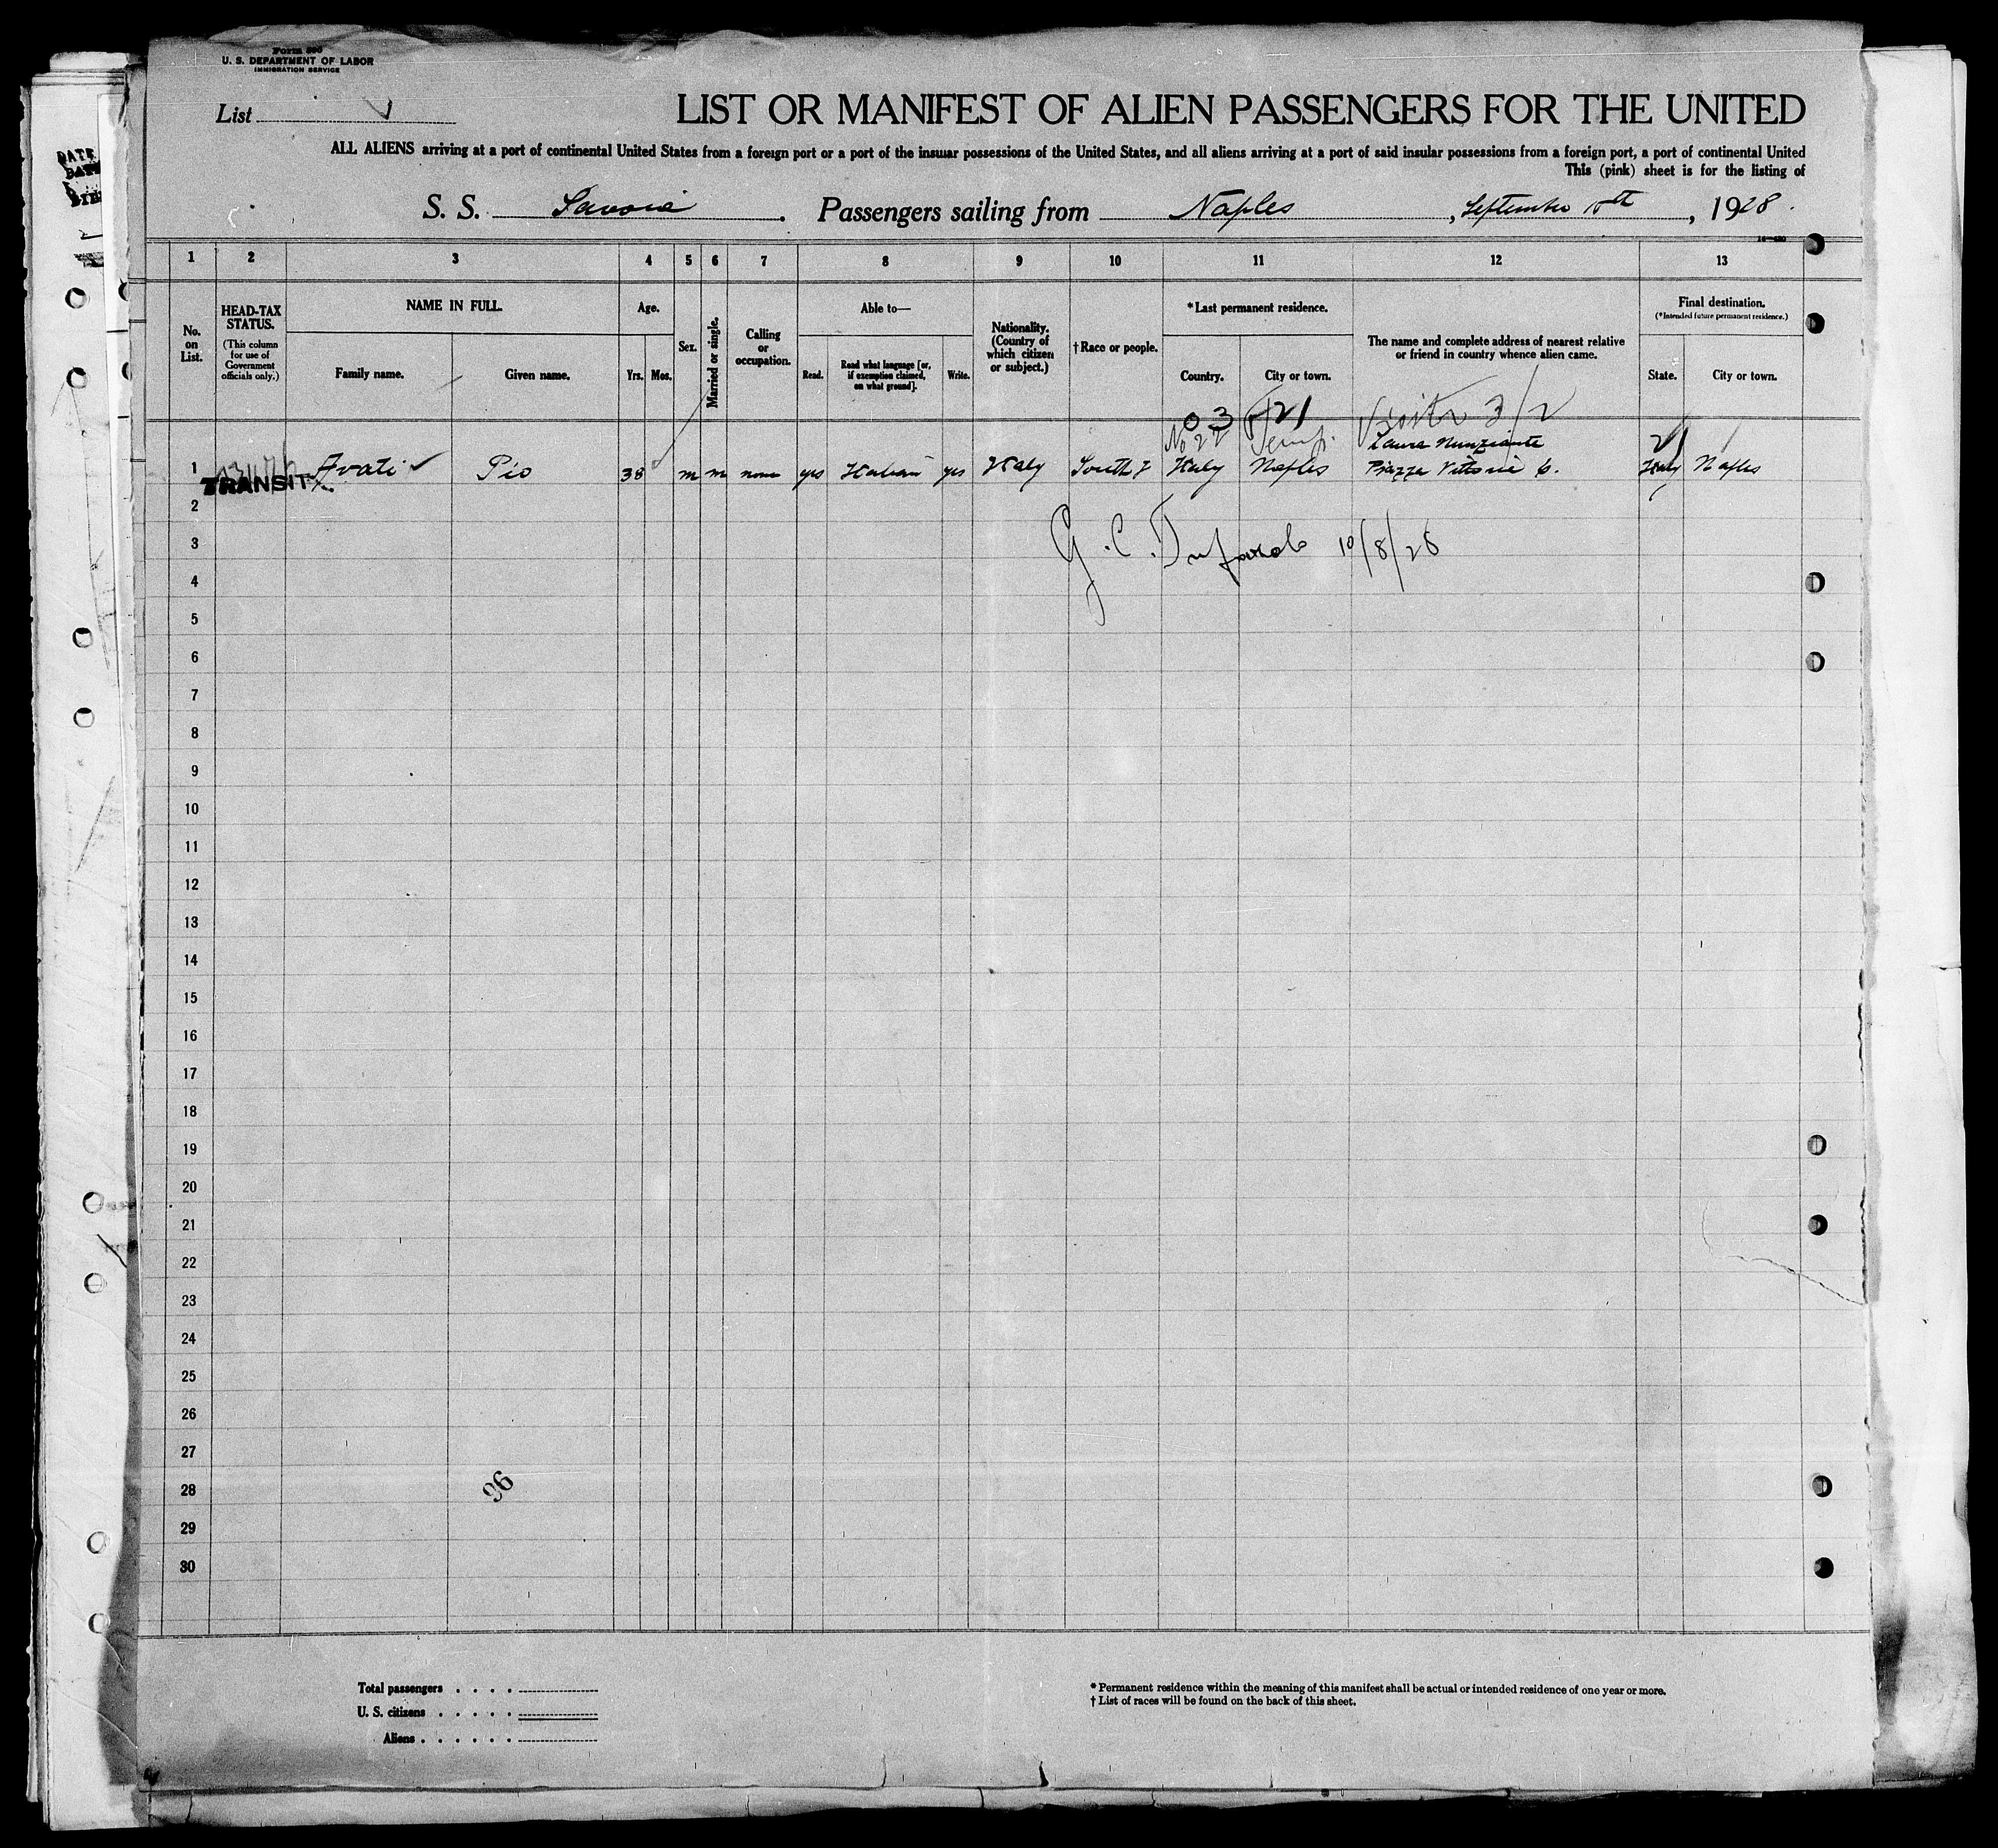 Form 500
U. S. DEPARTMENT OF LABOR
IMMIGRATION SERVICE
List
LIST OR MANIFEST OF ALIEN PASSENGERS FOR THE UNITED
ALL ALIENS arriving at a port of continental United States from a foreign port or a port of the insular possessions of the United States, and all aliens arriving at a port of said insular possessions from a foreign port, a port of continental United
This (pink) sheet is for the listing of
S. S. Savoia. Passengers sailing from Naples, September 15th, 1928.
1 2 3 4 5 6 7 8 9 10 11 12 13
No. on List.
HEAD-TAX STATUS.
(This column for use of Government officials only.)
NAME IN FULL.
Family name.
Given name.
Age.
Yrs. Mos.
Sex.
Married or single.
Calling or occupation.
Able to—
Read.
Read what language [or, if exemption claimed, on what ground].
Write.
Nationality. (Country of which citizen or subject.)
† Race or people.
* Last permanent residence.
Country.
City or town.
The name and complete address of nearest relative or friend in country whence alien came.
Final destination.
(* Intended future permanent residence.)
State.
City or town.
03 21
Visitor 3/2
Temp.
Laura Nunziante
1 TRANSIT Avati Pio 38 m m none yes Italian yes Italy South I Italy Naples Piazza Vittoria 6. Italy Naples
2
3 G. C. 10/8/28
4
5
6
7
8
9
10
11
12
13
14
15
16
17
18
19
20
21
22
23
24
25
26
27
28
96
29
30
Total passengers
U. S. citizens
Aliens
* Permanent residence within the meaning of this manifest shall be actual or intended residence of one year or more.
† List of races will be found on the back of this sheet.